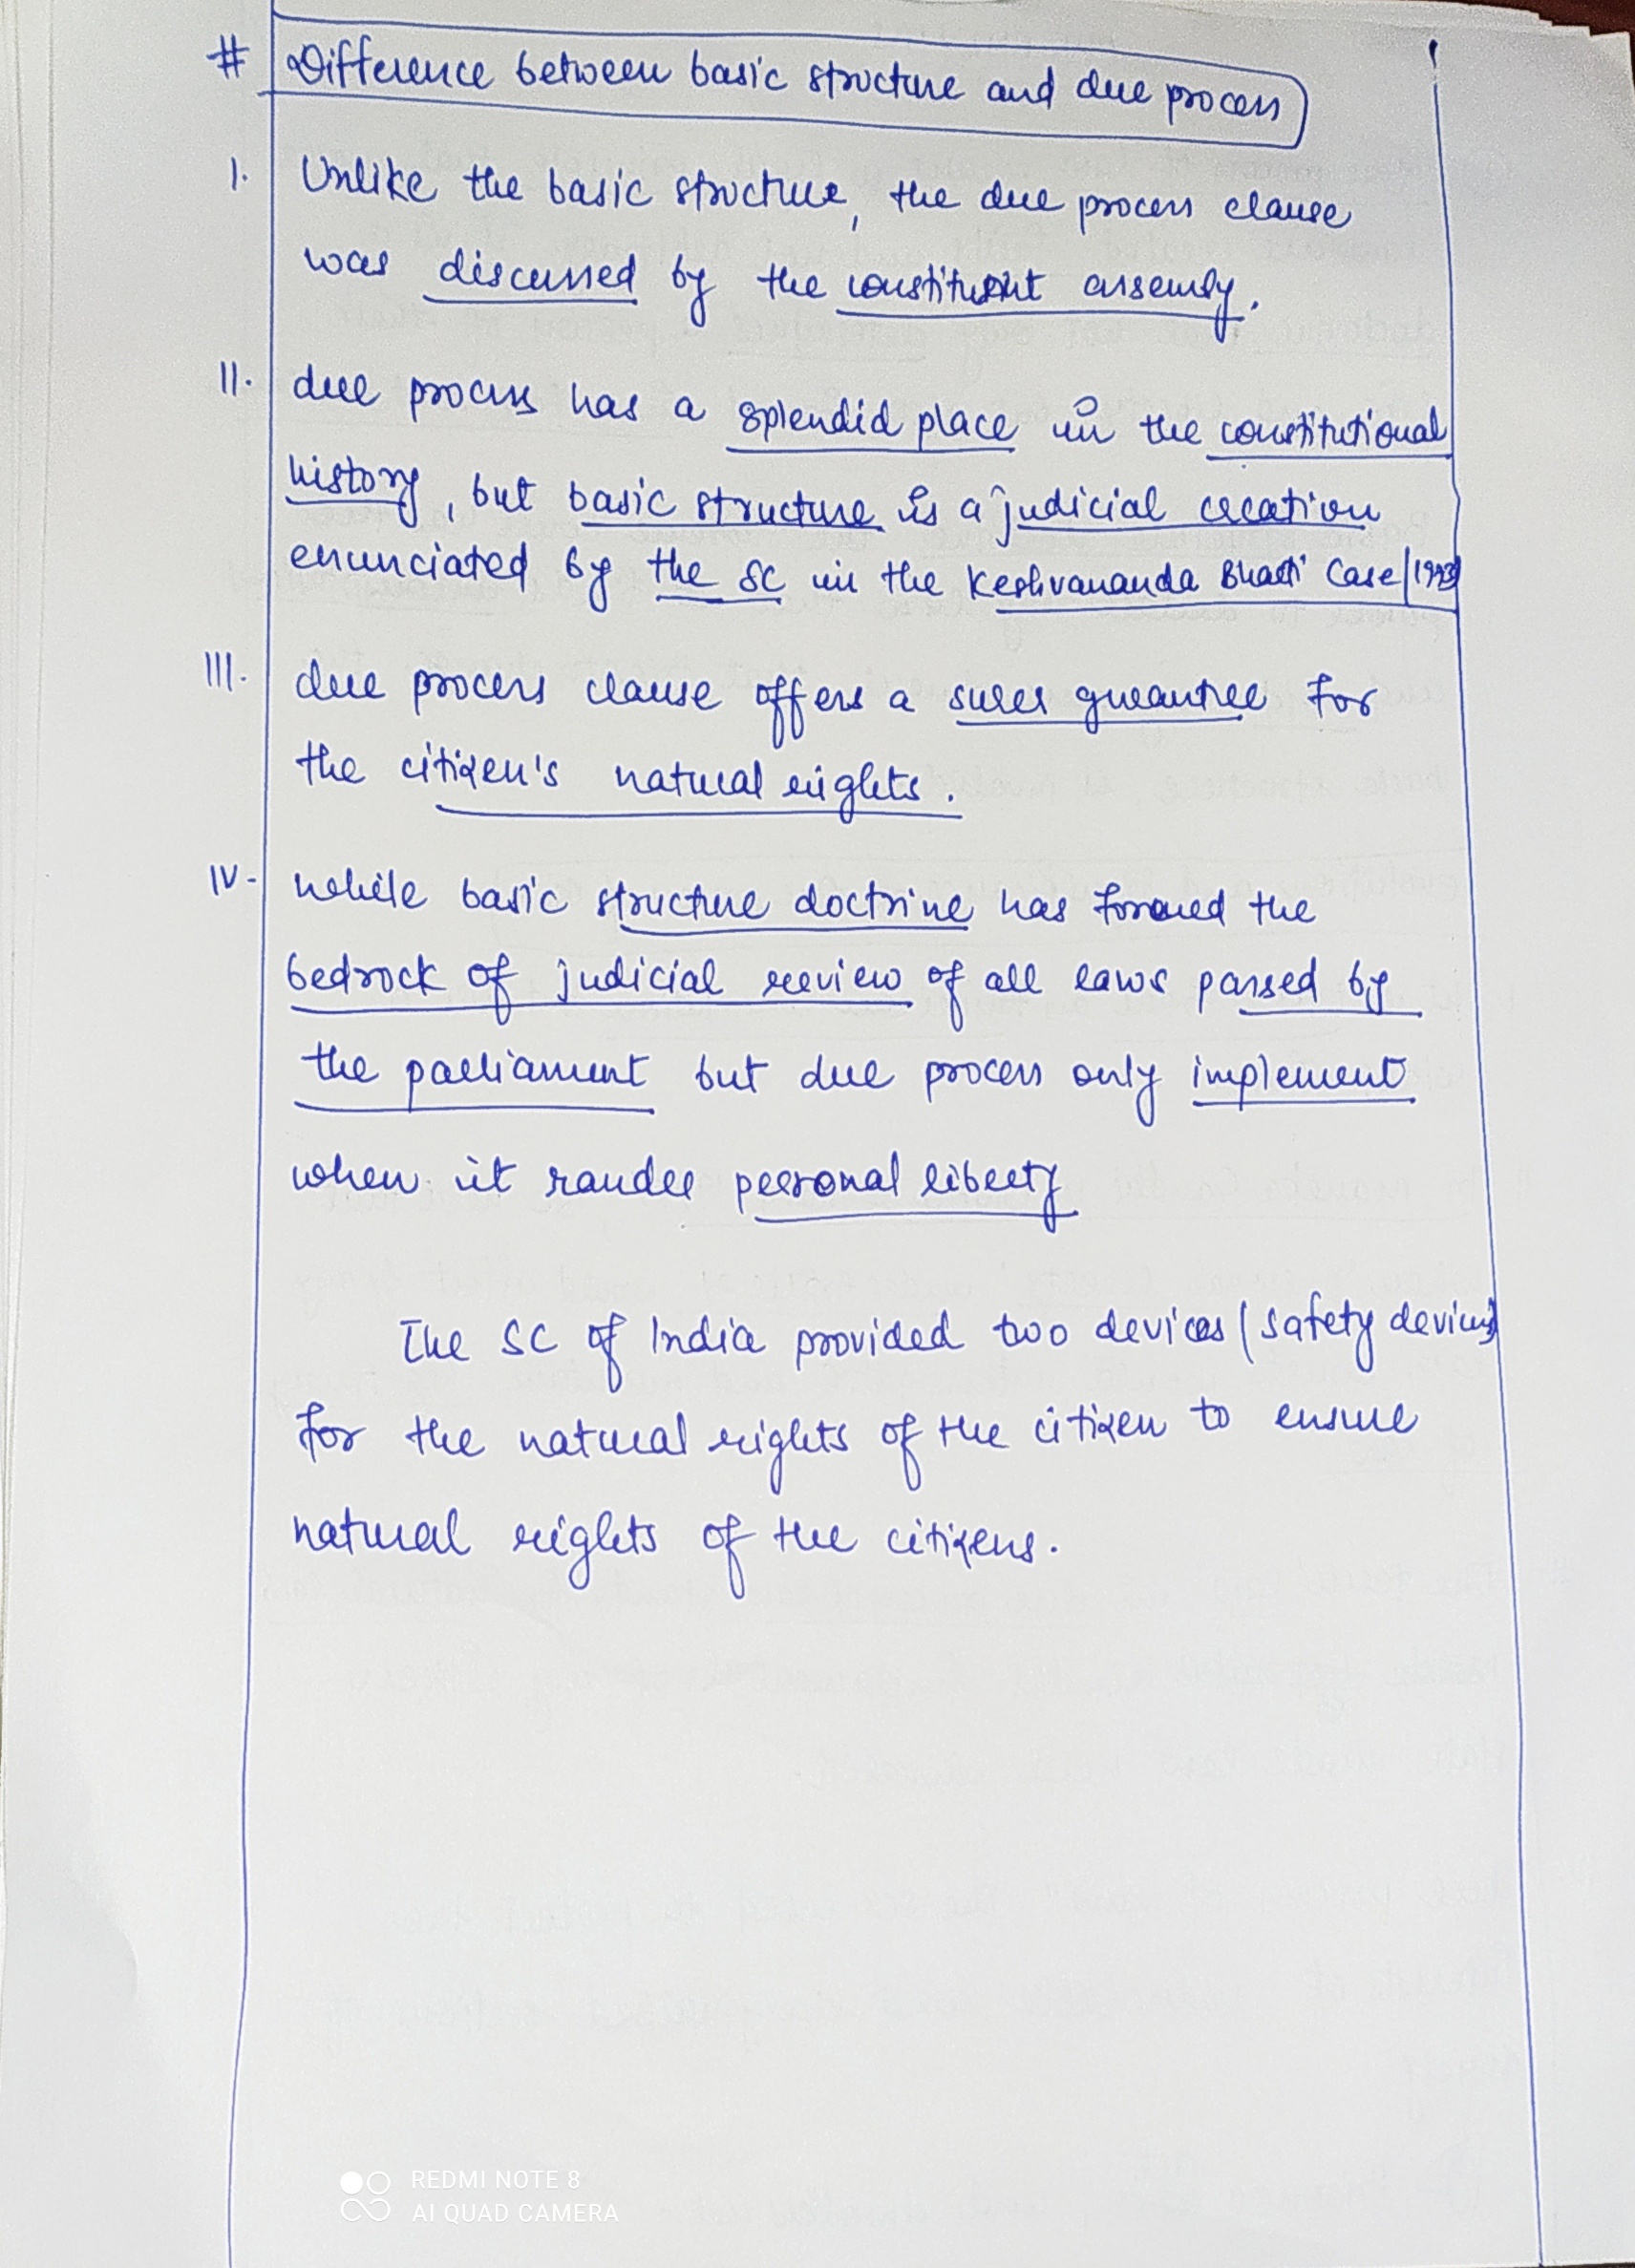 # Difference between basic structure and due process
I. Unlike the basic structure, the due process clause
was discussed by the constituent assemly.
II. due process has a splendid place in the constitutional
history, but basic structure is a judicial creation
enunciated by the SC in the Keshvananda Bharti Case/1973
III. due process clause offers a surer gurantree for
the citizen's natural rights.
IV- while basic structure doctrine has formed the
bedrock of judicial review of all laws passed by
the parliament but due process only implement
when it personal liberty
The SC of India provided two devices (safety devices)
for the natural rights of the citizen to ensure
natural rights of the citizens.
REDMI NOTE 8
AI QUAD CAMERA